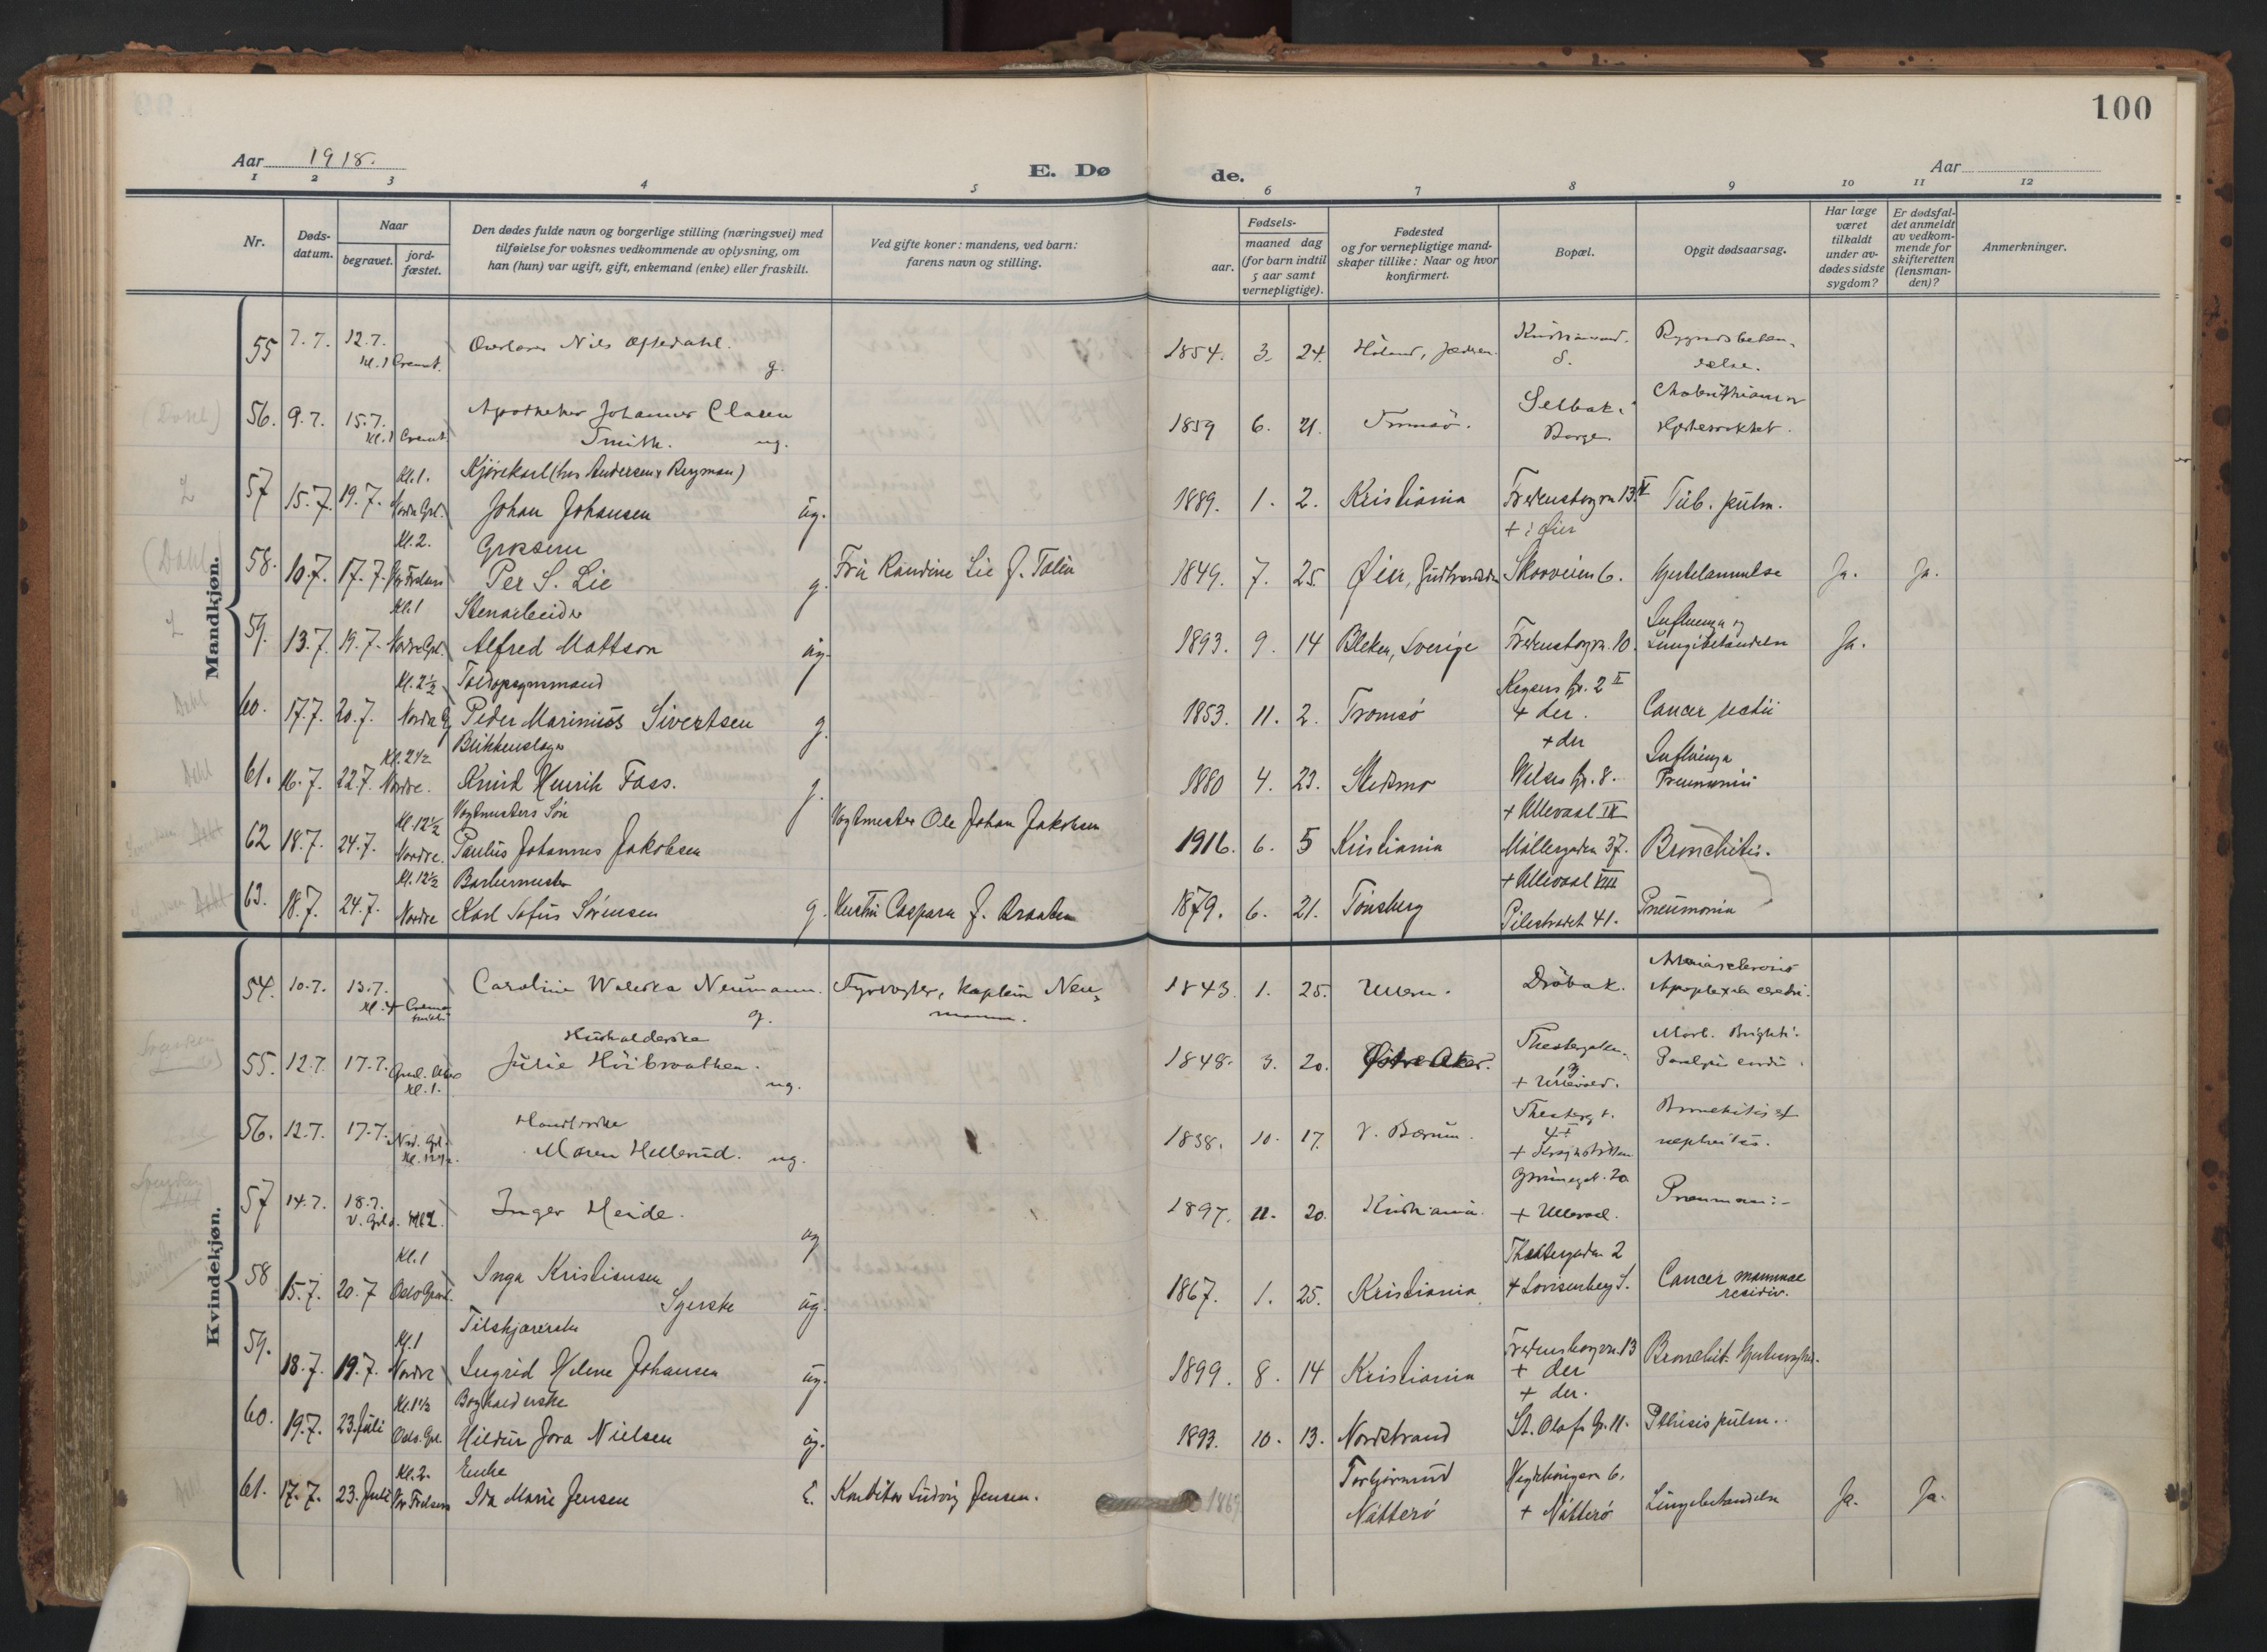 100
Aar 1918.
E. Døde.
Aar
1 2 3 4 5 6 7 8 9 10 11 12
Nr.
Døds-
datum.
Naar
begravet.
jord-
fæstet.
Den dødes fulde navn og borgerlige stilling (næringsvei) med
tilføielse for voksnes vedkommende av oplysning, om
han (hun) var ugift, gift, enkemand (enke) eller fraskilt.
Ved gifte koner: mandens, ved barn:
farens navn og stilling.
Fødsels-
aar.
maaned dag
(for barn indtil
5 aar samt
vernepligtige).
Fødested
og for vernepligtige mand-
skaper tillike: Naar og hvor
konfirmert.
Bopæl.
Opgit dødsaarsag.
Har læge
været
tilkaldt
under av-
dødes sidste
sygdom?
Er dødsfal-
det anmeldt
av vedkom-
mende for
skifteretten
(lensman-
den)?
Anmerkninger.
Mandkjøn.
55 7.7. 12.7. Nils Oftedahl. g. 1854. 3. 24.
Kl. 1 Cremt. S.
56. 9.7. 15.7. Apotheker Johannes Clasen 1859 6. 21. Tromsö. Selbak.
Kl. 1 Cremt. Smith. ug. Borge.
Kl. 1. Kjørekarl (hos Andersen & Bergman)
57 15.7. 19.7. Nordre Grl. Johan Johansen ug. 1889. 1. 2. Kristiania Fredensborgvn. 13 V Tub. pulm.
Kl. 2. Grosserer + i Øier
58. 10.7. 17.7. Vor Frelsers Per S. Lie g. Fru Randine Lie f. 1849. 7. 25. Øier, Gudbrandsdalen Skovveien 6. Hjertelammelse Ja. Ja.
Kl. 1 Stenarbeider Influenza og
59. 13.7. 19.7. Nordre Grl. Alfred Mattson ug. 1893. 9. 14 Bleken, Sverige Fredensborgvn. 10. Lungebetændelse Ja.
Kl. 2½ Toldopsynsmand Keysers gt. 2 II
60. 17.7. 20.7. Nordre G. Peder Marinius Sivertsen g. 1853. 11. 2. Tromsö + der. Cancer recti
Kl. 2½ Blikkenslager + der Influenza
61. 16.7. 22.7. Nordre. Knud Henrik Foss. g. 1880 4. 23. Skedsmo Wilses gt. 8. Pneumoni
Kl. 12½ Vogtmesters Søn + Ullevaal IX
62 18.7. 24.7. Nordre. Paulus Johannes Jakobsen Vogtmester Ole Johan Jakobsen 1916. 6. 5 Kristiania Möllergaden 37. Bronchitis.
Kl. 12½ Barbermester + Ullevaal VIII
63. 18.7. 24.7. Nordre Karl Sofus Sørensen g. Hustru Caspara f. Braaten 1879. 6. 21. Tönsberg Pilestrædet 41. Pneumonia
Kvindekjøn.
54. 10.7. 13.7. Caroline Neumann. g. Fyrvogter, kaptein Neu- 1843. 1. 25. Ullern. Dröbak. Arteriosclerosis
Kl. 4 mann. Apoplexia cerebri.
Husholderske Morb. Brighti.
55. 12.7. 17.7. Kl. 1. Julie Höibraathen. ug. 1848. 3. 20. Østre Aker. Theatergaten + Ullevaal. Paralysis cordis.
56. 12.7. 17.7. Maren Hellerud. ug. 1838. 10. 17. V. Bærum. Bronchitis et
nephritis.
57 14.7. 18.7. V. Grl. Kl. 2. Inger Heide. ug 1897. 11. 20. Kristiania. + Ullevaal. Pneumoni
Kl. 1 Theatergaden 2
58 15.7. 20.7 Oslo Gravl. Inga Kristiansen 1867. 1. 25. Kristiania + Lovisenberg S. Cancer mammae
Syerske ug. residiv.
Kl. 1 Tilskjærerske Fredensborgvn. 13
59. 18.7. 19.7. Nordre Ingrid Helene Johansen ug. 1899. 8. 14 Kristiania + der Bronchit.
Kl. 1½ Bogholderske + der.
60. 19.7. 23. Juli Oslo Grl. Hildur Jora Nielsen ug. 1893. 10. 13. Nordstrand St. Olafs gt. 11. Pthisis pulm.
Kl. 2. Enke Torbjörnrud Heghaugen 6.
61. 17.7. 23. Juli Vor Frelsers Ida Marie Jensen E. Konditor Ludvig Jensen. 1869 Nötterö + Nötterö Lungebetændelse Ja. Ja.